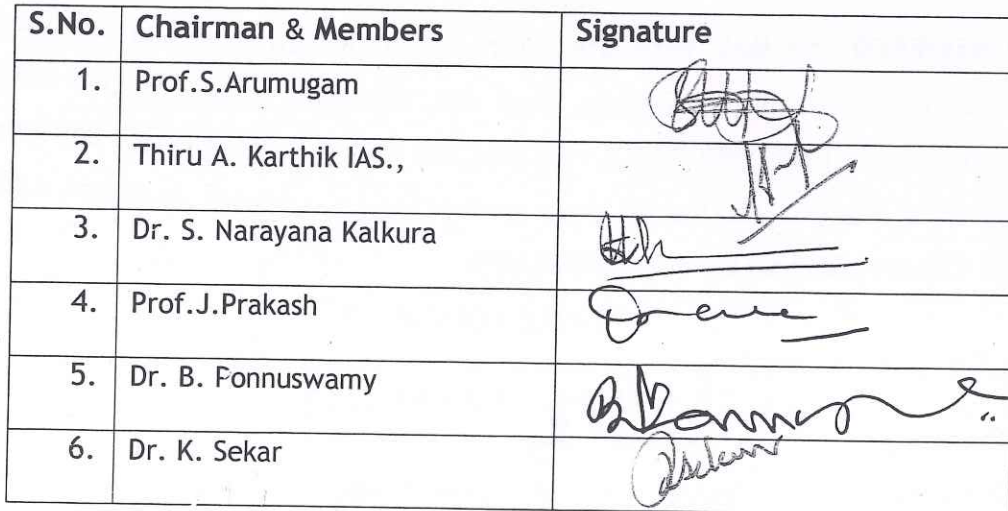 S.No. Chairman & Members Signature
1. Prof.S.Arumugam
2. Thiru A. Karthik IAS.,
3. Dr. S. Narayana Kalkura
4. Prof.J.Prakash
5. Dr. B. Ponnuswamy
6. Dr. K. Sekar